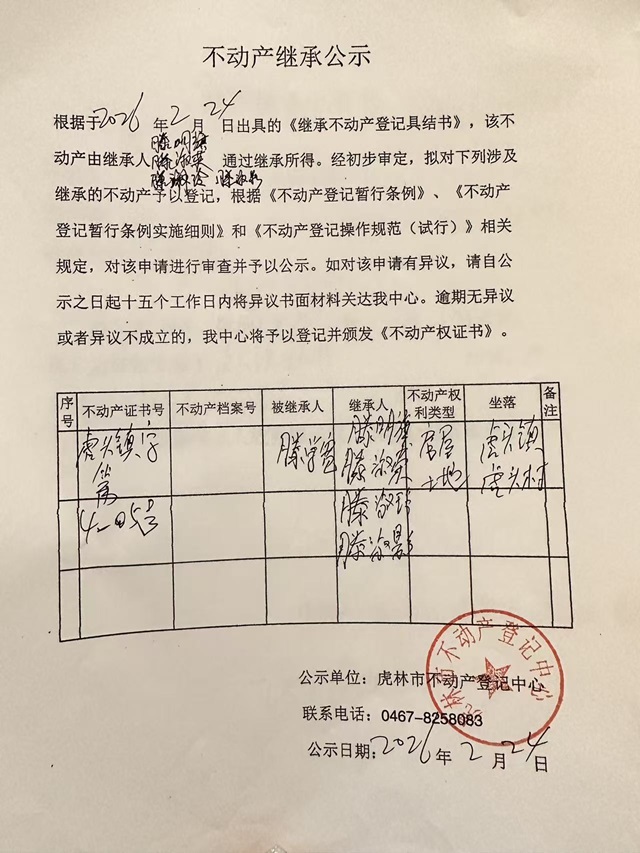 不动产继承公示
根据于2026年2月24日出具的《继承不动产登记具结书》，该不
滕明
动产由继承人滕淑英通过继承所得。经初步审定，拟对下列涉及
滕淑玲 滕淑影
继承的不动产予以登记，根据《不动产登记暂行条例》、《不动产
登记暂行条例实施细则》和《不动产登记操作规范（试行）》相关
规定，对该申请进行审查并予以公示。如对该申请有异议，请自公
示之日起十五个工作日内将异议书面材料关达我中心。逾期无异议
或者异议不成立的，我中心将予以登记并颁发《不动产权证书》。
序号 不动产证书号 不动产档案号 被继承人 继承人 不动产权利类型 坐落 备注
虎头镇字 滕学 滕明 房屋 虎头镇
第 滕淑英 土地 虎头村
号 滕淑玲
滕淑影
公示单位：虎林市不动产登记中心
联系电话：0467-8258083
公示日期：2026年2月24日
林市不动产登记中心